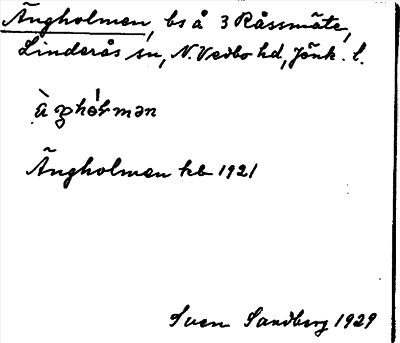 Ängholmen, bs å 3 Råssmäte,
Linderås sn, N. Vedbo hd, Jönk. l.
Ängholmen kb 1921
Sven Sandberg 1929